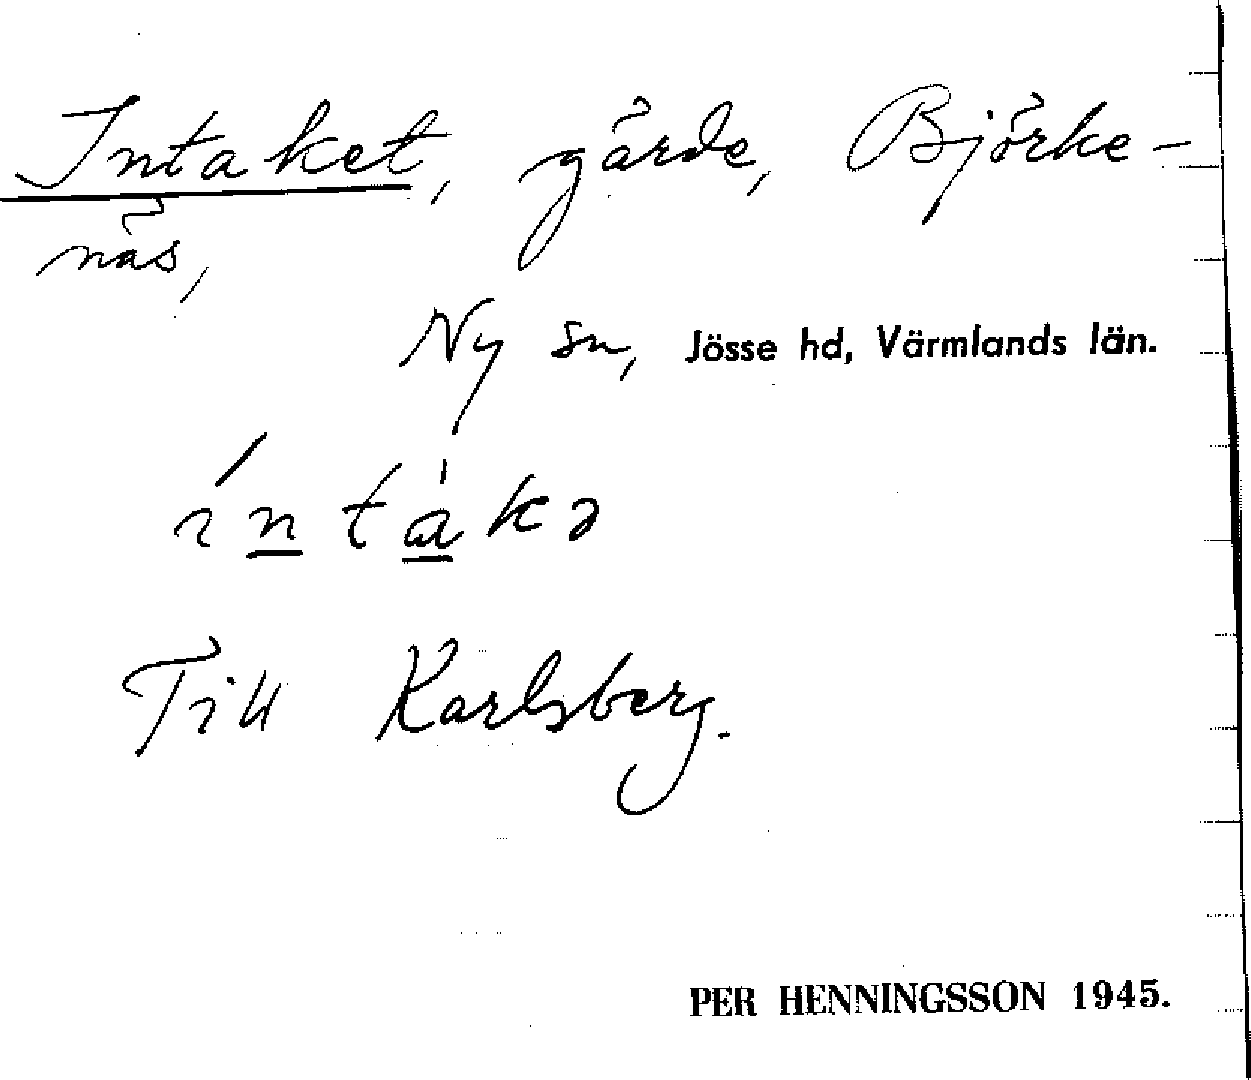 Intaket, gärde, Björke-
näs,
Ny sn, Jösse hd, Värmlands län.
ı́ntàkə
Till Karlsberg.
PER HENNINGSSON 1945.